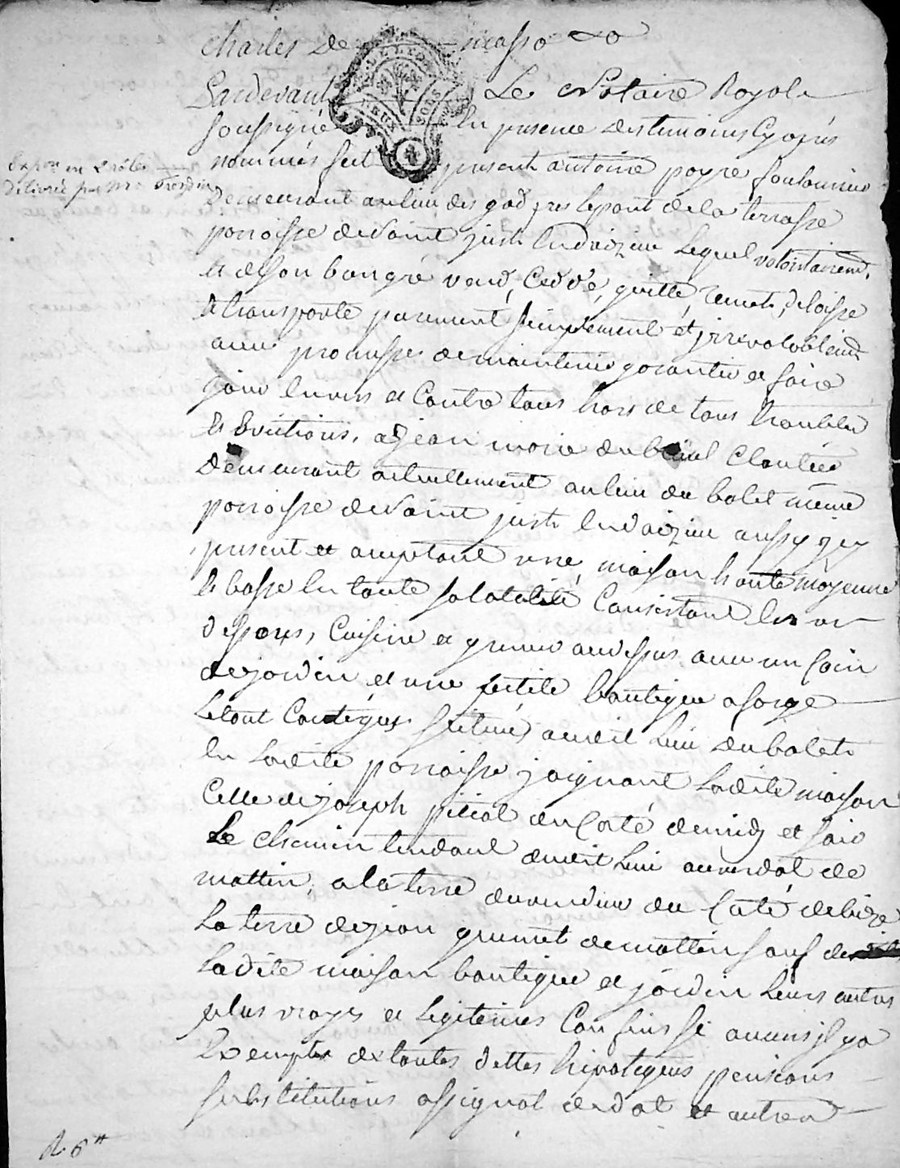 charles de
Pardevant Le Notaire Royale
soussigné en presence destemoins cy apres
nommés fut present antoine poyre
Expon en Role
délivrée par me
Demeurant aulieu des gad pres lepont dela terrasse
parroisse desaint just endoizieu lequel volontairemt
et deson bongré vend, cedde, quitte remet, delaisse
et transporte purement simplement et jrrevocablemt
avec promesse demaintenir garantir et faire
jouir envers et Contre tous hors de tous troubles
et Evictions, a jean marie dubreuil cloutier
Demeurant actuellement aulieu du bolet même
parroisse desaint just endoizieu aussy jcy
present et acceptant une maison haute moyenne
et basse en toute sa totalité Consistant en un
dessous, Cuisine et grenier audessus avec un Coin
dejardin et une petite boutique aforge
letout Contigus scitués audit lieu dubolet
en Ladite parroisse joignant Ladite maison
Celle dejoseph pitiot du Coté demidy et soir
Le chemin tendant dudit lieu auverdol de
mattin, a la terre duvendeur du Coté debize
La terre dejean grumet demattin sauf de
Ladite maison boutique et jardin leurs autres
plus vrays et legitimes Confins se aucuns jl ya
Exempts detoutes dettes hipoteques pensions
substitutions assignat dedot et autres
R. 6#